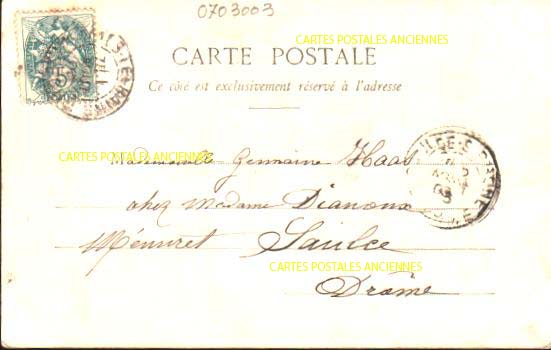 0703003
CARTES POSTALES ANCIENNES
CARTE POSTALE
Ce côté est exclusivement réservé à l'adresse
5
CARTES POSTALES ANCIENNES
Mademoiselle Germaine Haas
chez Madame Dianoux
Ménuret Saulce
CARTES POSTALES ANCIENNES
Drôme